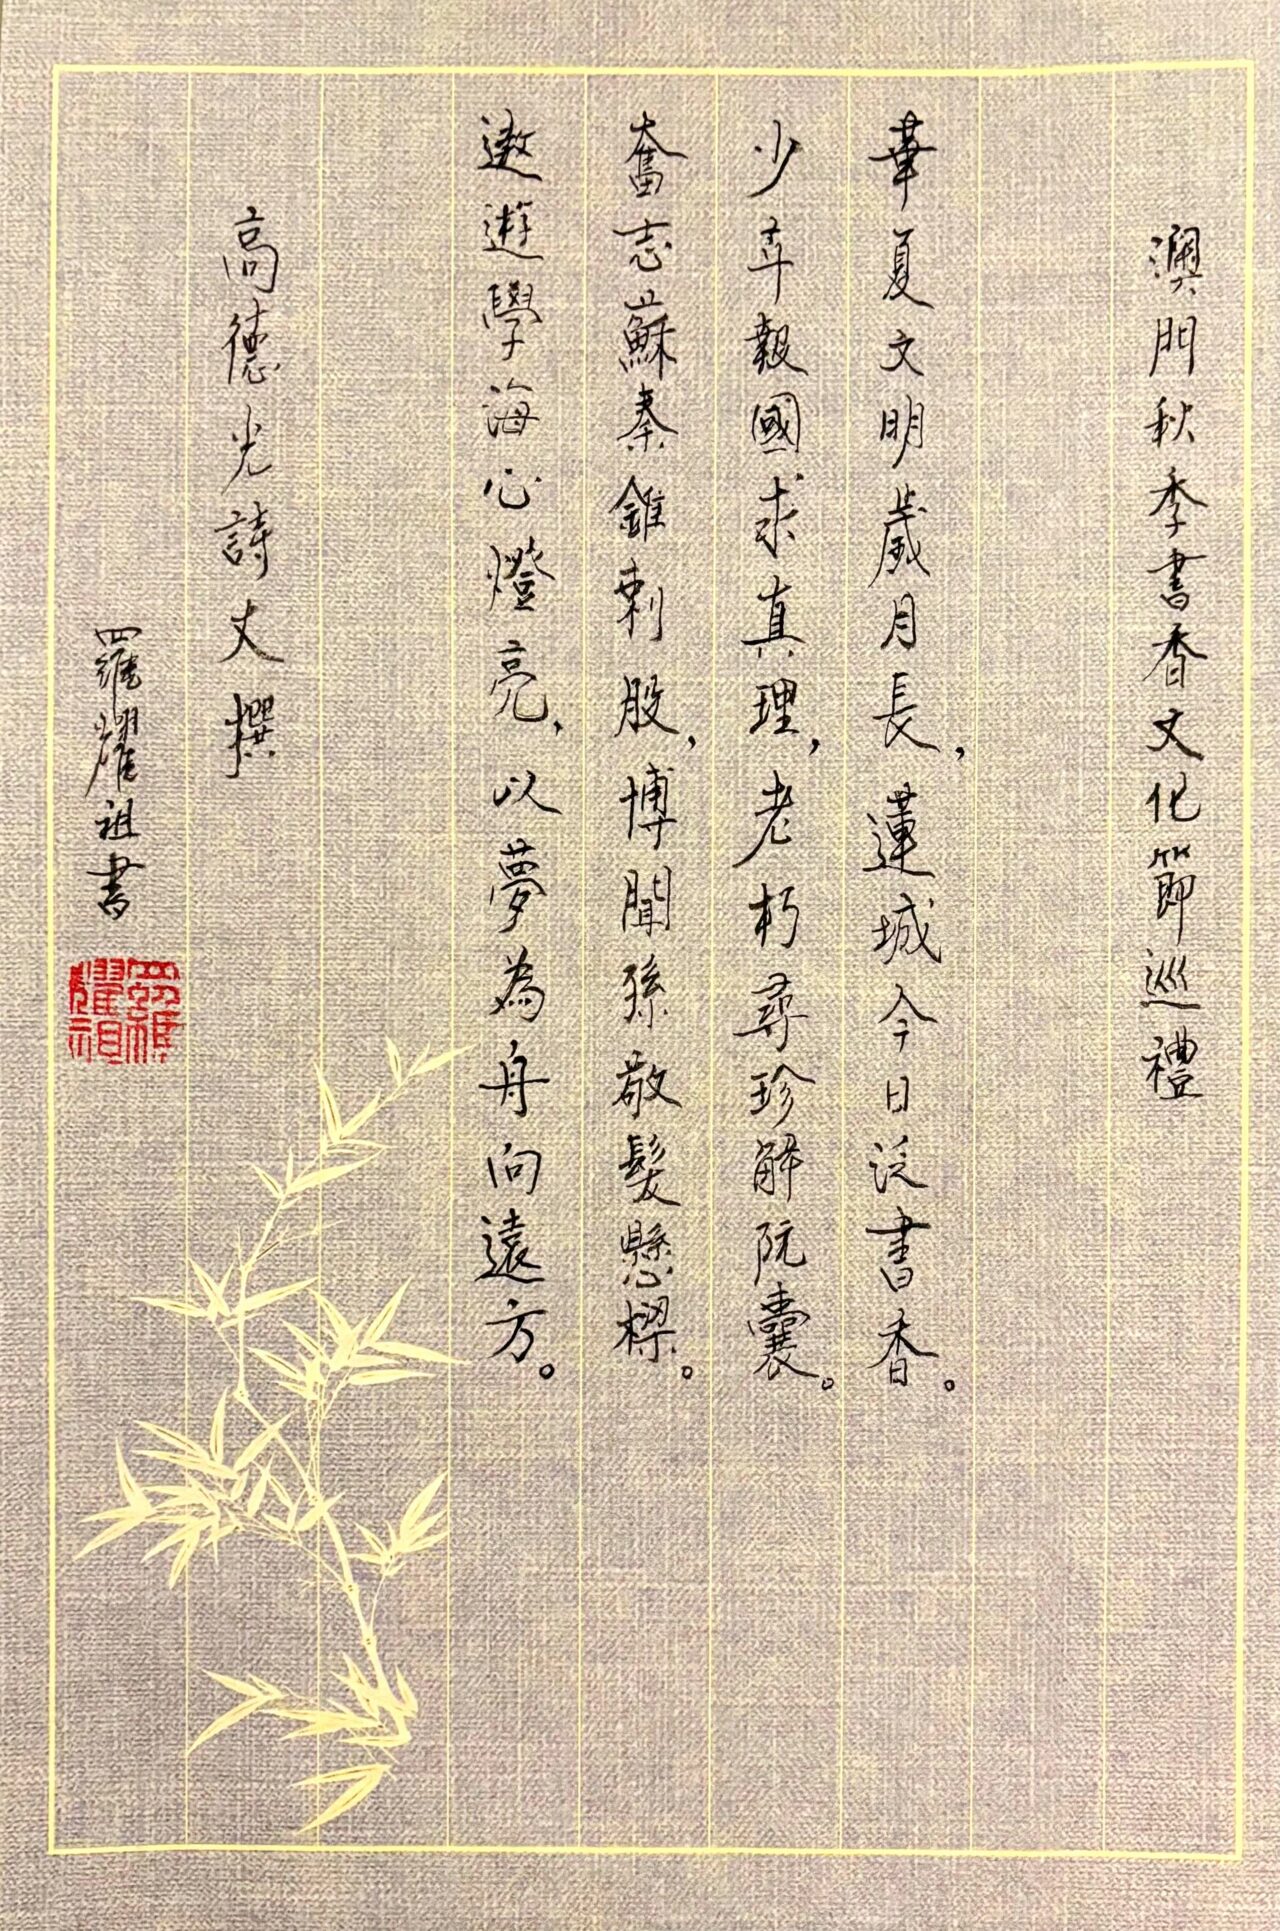 澳門秋季書香文化節巡禮
華夏文明歲月長，蓮城今日泛書香。
少年報國求真理，老朽尋珍解阮囊。
奮志蘇秦錐刺股，博聞孫敬髮懸樑。
遨遊學海心燈亮，以夢為舟向遠方。
高德光詩丈撰
羅耀祖書
羅耀祖